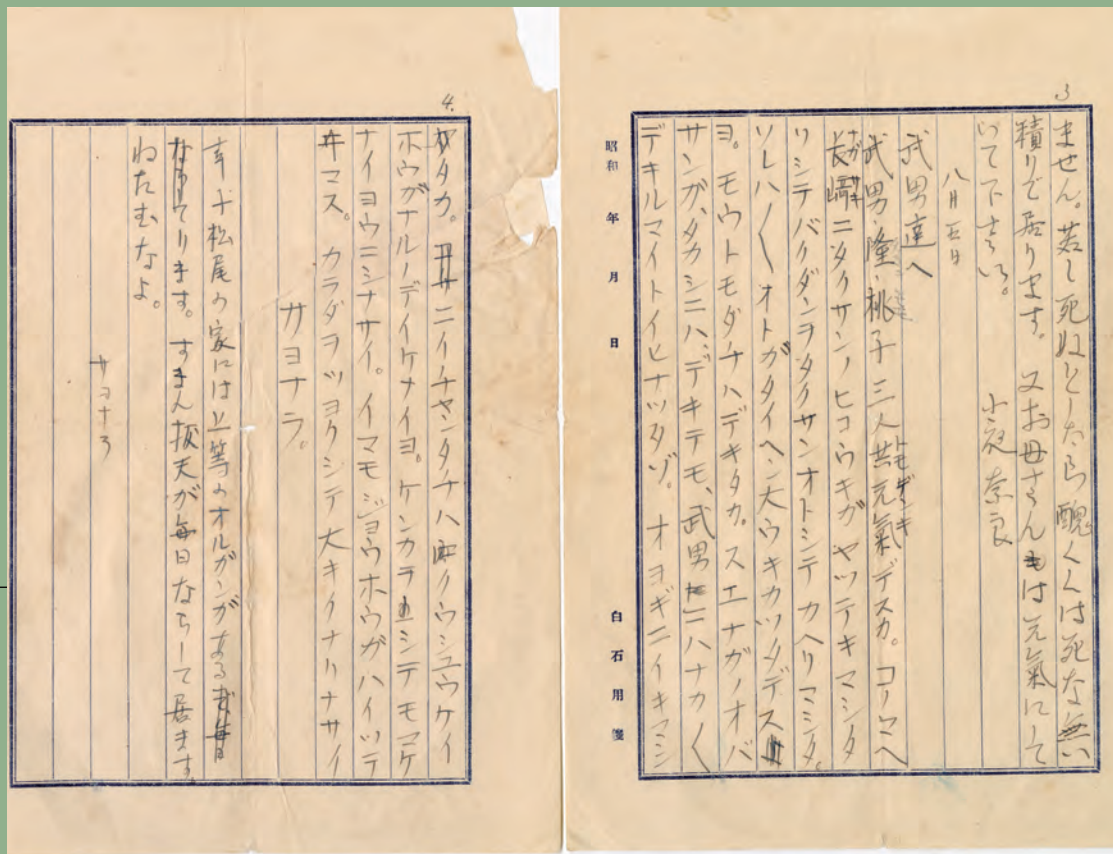 3
ません。若し死ぬとしたら醜くくは死な無い
積りで居ります。又お母さんもは元氣にして
いて下さい。 小夜奈良
八月五日
武男達へ
武男、隆、桃子三人共元氣トモゲンキデスカ。コノマヘ
長崎ニタクサンノヒコウキガヤツテキマシタ
ソシテバクダンヲタクサンオトシテカヘリマシタ。
ソレハ〳〵オトガタイヘン大ウキカツタデス
ヨ。モウトモダチハデキタカ。スエナガノオバ
サンガ、タカシニハ、デキテモ、武男ニハナカ〳〵
デキルマイトイヒナツタゾ。オヨギニイキマシ
昭和 年 月 日
白石用箋
4.
タカ。ニイチヤンタチハクウシユウケイ
ホウガナルノデイケナイヨ。ケンカヲシテモマケ
ナイヨウニシナサイ。イマモジヨウホウガハイツテ
ヰマス。カラダヲツヨクシテ大キクナリナサイ
サヨナラ。
幸子松尾の家には上等のオルガンがある
なってります。すまん抜天が毎日ならして居ます
ねたむなよ。
サヨナラ